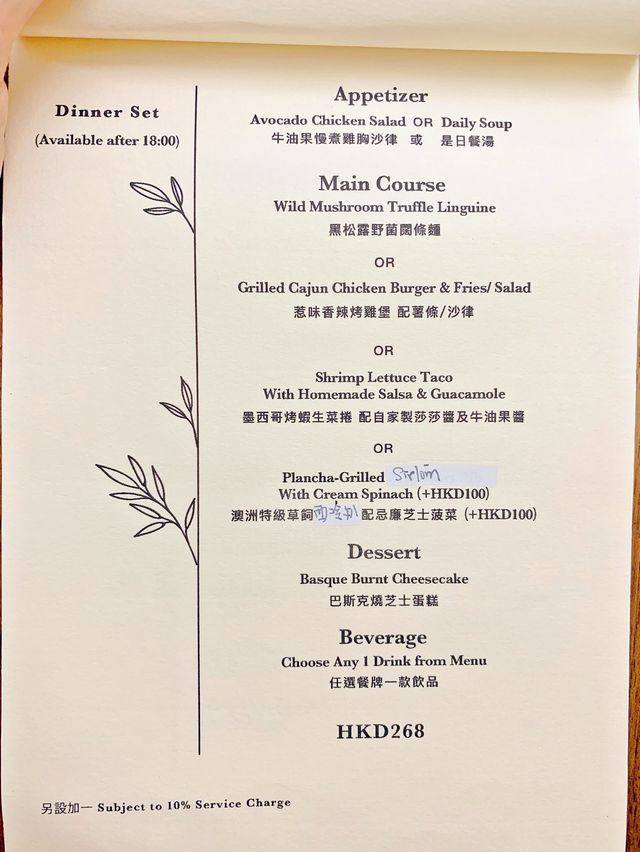 Dinner Set
(Available after 18:00)
Appetizer
Avocado Chicken Salad OR Daily Soup
牛油果慢煮雞胸沙律 或 是日餐湯
Main Course
Wild Mushroom Truffle Linguine
黑松露野菌闊條麵
OR
Grilled Cajun Chicken Burger & Fries/ Salad
惹味香辣烤雞堡 配薯條/沙律
OR
Shrimp Lettuce Taco
With Homemade Salsa & Guacamole
墨西哥烤蝦生菜捲 配自家製莎莎醬及牛油果醬
OR
Plancha-Grilled Sirloin
With Cream Spinach (+HKD100)
澳洲特級草飼西冷扒配忌廉芝士菠菜 (+HKD100)
Dessert
Basque Burnt Cheesecake
巴斯克燒芝士蛋糕
Beverage
Choose Any 1 Drink from Menu
任選餐牌一款飲品
HKD268
另設加一 Subject to 10% Service Charge